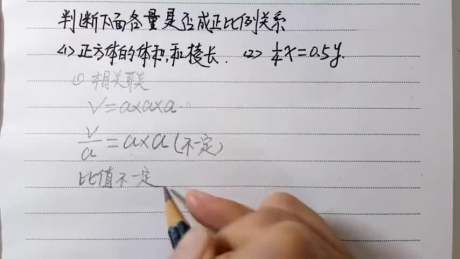 判断下面各量是否成正比例关系
(1)正方体的体积和棱长. (2) ¼x=0.5y.
① 相关联
V=a×a×a.
V/a=a×a(不一定)
比值不一定